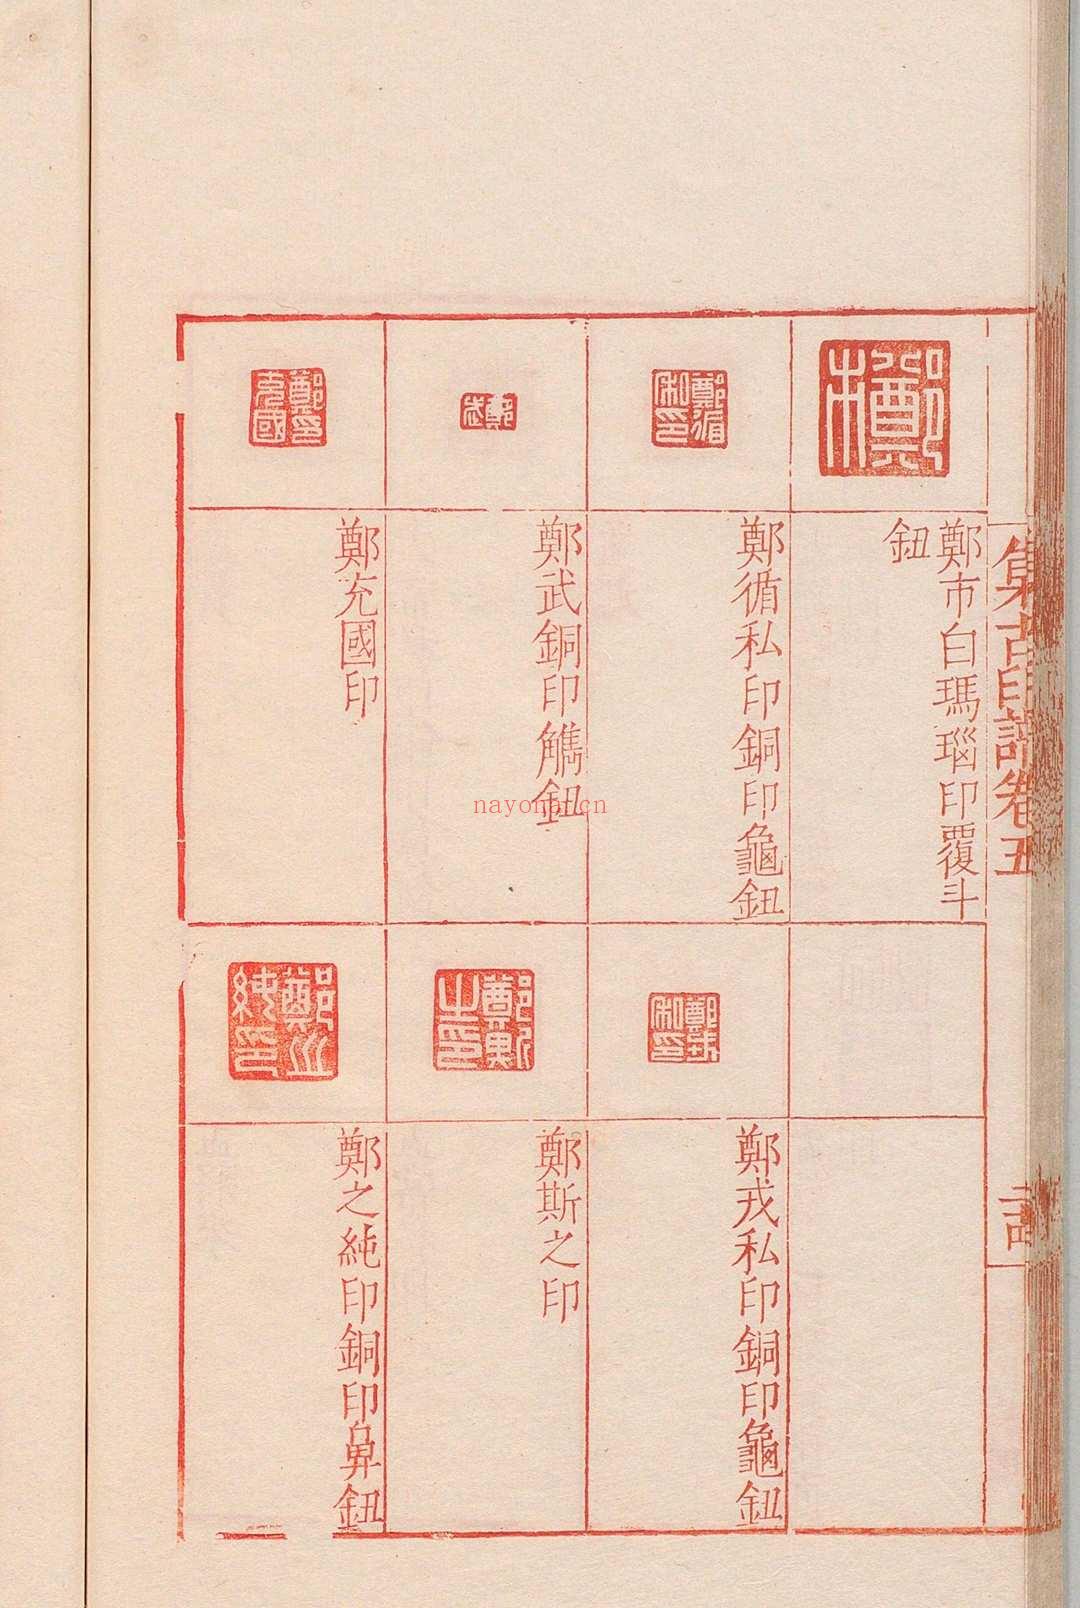 集古印譜卷五
鄭市白瑪瑙印覆斗
鈕
鄭循私印銅印龜鈕
鄭武銅印觹鈕
鄭充國印
鄭戎私印銅印龜鈕
鄭斯之印
鄭之純印銅印鼻鈕
nayona.cn